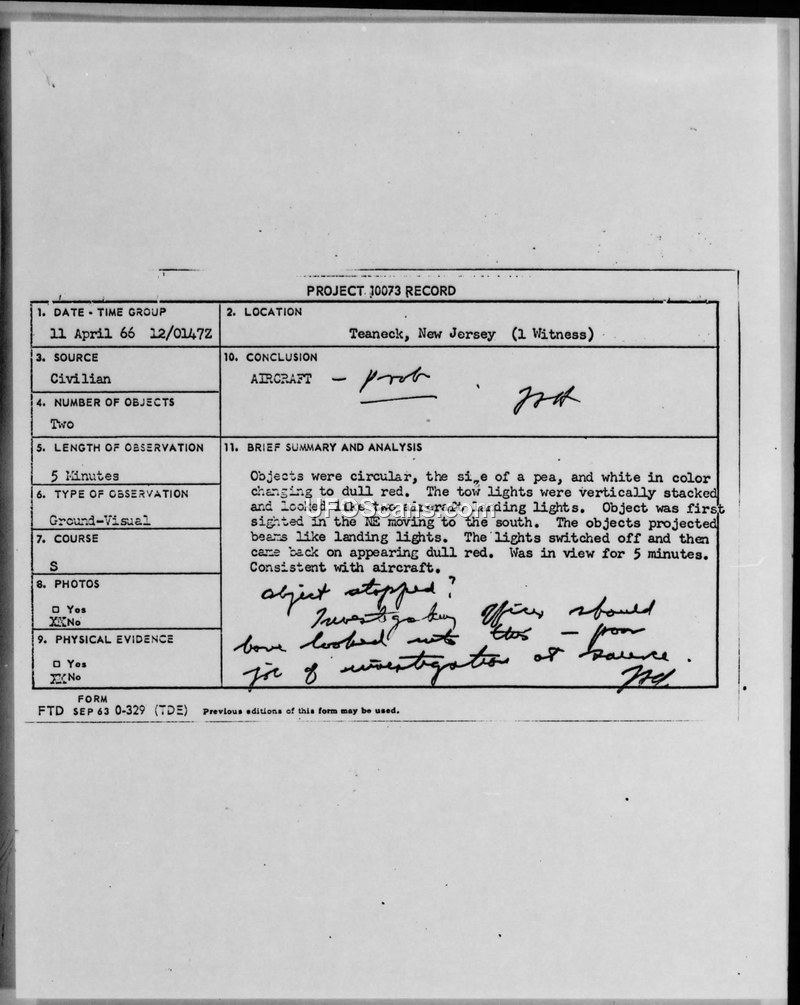 PROJECT 10073 RECORD
1. DATE - TIME GROUP
11 April 66 12/0147Z
2. LOCATION
Teaneck, New Jersey (1 Witness)
3. SOURCE
Civilian
10. CONCLUSION
AIRCRAFT - prob
JAH
4. NUMBER OF OBJECTS
Two
5. LENGTH OF OBSERVATION
5 Minutes
11. BRIEF SUMMARY AND ANALYSIS
Objects were circular, the size of a pea, and white in color
changing to dull red. The tow lights were vertically stacked
and looked like two aircraft landing lights. Object was first
sighted in the NE moving to the south. The objects projected
beams like landing lights. The lights switched off and then
came back on appearing dull red. Was in view for 5 minutes.
Consistent with aircraft.
object stopped?
Investigating Officer should
have looked into this - poor
job of investigation at source.
JAH
6. TYPE OF OBSERVATION
Ground-Visual
7. COURSE
S
8. PHOTOS
□ Yes
XX No
9. PHYSICAL EVIDENCE
□ Yes
XX No
FORM
FTD SEP 63 0-329 (TDE) Previous editions of this form may be used.
UFOScans.com